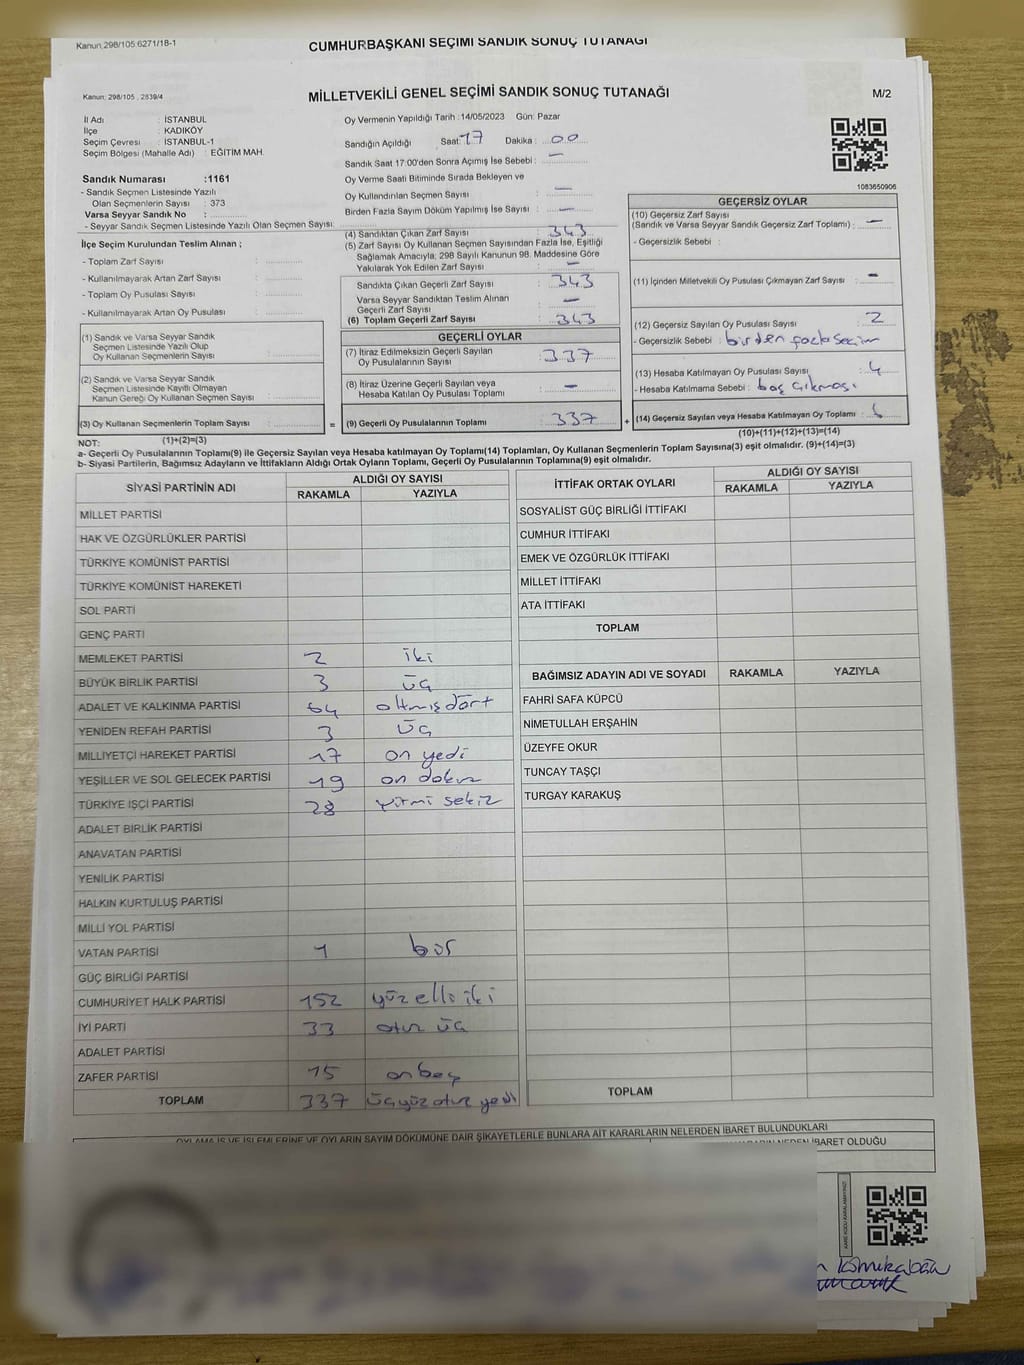 Kanun 298/105 6271/18-1
CUMHURBAŞKANI SEÇİMİ SANDIK SONUÇ TUTANAĞI
Kanun: 298/105 , 2839/4
MİLLETVEKİLİ GENEL SEÇİMİ SANDIK SONUÇ TUTANAĞI
M/2
İl Adı : İSTANBUL
İlçe : KADIKÖY
Seçim Çevresi : İSTANBUL-1
Seçim Bölgesi (Mahalle Adı) : EĞİTİM MAH.
Sandık Numarası :1161
- Sandık Seçmen Listesinde Yazılı
Olan Seçmenlerin Sayısı : 373
Varsa Seyyar Sandık No :
- Seyyar Sandık Seçmen Listesinde Yazılı Olan Seçmen Sayısı:
İlçe Seçim Kurulundan Teslim Alınan ;
- Toplam Zarf Sayısı :
- Kullanılmayarak Artan Zarf Sayısı :
- Toplam Oy Pusulası Sayısı :
- Kullanılmayarak Artan Oy Pusulası :
(1) Sandık ve Varsa Seyyar Sandık
Seçmen Listesinde Yazılı Olup
Oy Kullanan Seçmenlerin Sayısı :
(2) Sandık ve Varsa Seyyar Sandık
Seçmen Listesinde Kayıtlı Olmayan
Kanun Gereği Oy Kullanan Seçmen Sayısı :
(3) Oy Kullanan Seçmenlerin Toplam Sayısı :
(1)+(2)=(3)
Oy Vermenin Yapıldığı Tarih :14/05/2023 Gün: Pazar
Sandığın Açıldığı Saat: 17 Dakika : 00
Sandık Saat 17:00'den Sonra Açılmış İse Sebebi : —
Oy Verme Saati Bitiminde Sırada Bekleyen ve
Oy Kullandırılan Seçmen Sayısı : —
Birden Fazla Sayım Döküm Yapılmış İse Sayısı : —
(4) Sandıktan Çıkan Zarf Sayısı : 343
(5) Zarf Sayısı Oy Kullanan Seçmen Sayısından Fazla İse, Eşitliği
Sağlamak Amacıyla, 298 Sayılı Kanunun 98. Maddesine Göre
Yakılarak Yok Edilen Zarf Sayısı : —
Sandıkta Çıkan Geçerli Zarf Sayısı : 343
Varsa Seyyar Sandıktan Teslim Alınan
Geçerli Zarf Sayısı : —
(6) Toplam Geçerli Zarf Sayısı : 343
GEÇERLİ OYLAR
(7) İtiraz Edilmeksizin Geçerli Sayılan
Oy Pusulalarının Sayısı : 337
(8) İtiraz Üzerine Geçerli Sayılan veya
Hesaba Katılan Oy Pusulası Toplamı : —
= (9) Geçerli Oy Pusulalarının Toplamı : 337 +
1083650906
GEÇERSİZ OYLAR
(10) Geçersiz Zarf Sayısı
(Sandık ve Varsa Seyyar Sandık Geçersiz Zarf Toplamı) : —
- Geçersizlik Sebebi :
(11) İçinden Milletvekili Oy Pusulası Çıkmayan Zarf Sayısı : -
(12) Geçersiz Sayılan Oy Pusulası Sayısı : 2
- Geçersizlik Sebebi : birden fazla seçim
(13) Hesaba Katılmayan Oy Pusulası Sayısı : 4
- Hesaba Katılmama Sebebi : boş çıkması
(14) Geçersiz Sayılan veya Hesaba Katılmayan Oy Toplamı : 6
(10)+(11)+(12)+(13)=(14)
NOT:
a- Geçerli Oy Pusulalarının Toplamı(9) ile Geçersiz Sayılan veya Hesaba katılmayan Oy Toplamı(14) Toplamları, Oy Kullanan Seçmenlerin Toplam Sayısına(3) eşit olmalıdır. (9)+(14)=(3)
b- Siyasi Partilerin, Bağımsız Adayların ve İttifakların Aldığı Ortak Oyların Toplamı, Geçerli Oy Pusulalarının Toplamına(9) eşit olmalıdır.
SİYASİ PARTİNİN ADI
ALDIĞI OY SAYISI
RAKAMLA YAZIYLA
MİLLET PARTİSİ
HAK VE ÖZGÜRLÜKLER PARTİSİ
TÜRKİYE KOMÜNİST PARTİSİ
TÜRKİYE KOMÜNİST HAREKETİ
SOL PARTİ
GENÇ PARTİ
MEMLEKET PARTİSİ 2 iki
BÜYÜK BİRLİK PARTİSİ 3 üç
ADALET VE KALKINMA PARTİSİ 64 altmış dört
YENİDEN REFAH PARTİSİ 3 üç
MİLLİYETÇİ HAREKET PARTİSİ 17 on yedi
YEŞİLLER VE SOL GELECEK PARTİSİ 19 on dokuz
TÜRKİYE İŞÇİ PARTİSİ 28 yirmi sekiz
ADALET BİRLİK PARTİSİ
ANAVATAN PARTİSİ
YENİLİK PARTİSİ
HALKIN KURTULUŞ PARTİSİ
MİLLİ YOL PARTİSİ
VATAN PARTİSİ 1 bir
GÜÇ BİRLİĞİ PARTİSİ
CUMHURİYET HALK PARTİSİ 152 yüz elli iki
İYİ PARTİ 33 otuz üç
ADALET PARTİSİ
ZAFER PARTİSİ 15 on beş
TOPLAM 337 üçyüz otuz yedi
İTTİFAK ORTAK OYLARI
ALDIĞI OY SAYISI
RAKAMLA YAZIYLA
SOSYALİST GÜÇ BİRLİĞİ İTTİFAKI
CUMHUR İTTİFAKI
EMEK VE ÖZGÜRLÜK İTTİFAKI
MİLLET İTTİFAKI
ATA İTTİFAKI
TOPLAM
BAĞIMSIZ ADAYIN ADI VE SOYADI RAKAMLA YAZIYLA
FAHRİ SAFA KÜPCÜ
NİMETULLAH ERŞAHİN
ÜZEYFE OKUR
TUNCAY TAŞÇI
TURGAY KARAKUŞ
TOPLAM
OYLAMA İŞ VE İŞLEMLERİNE VE OYLARIN SAYIM DÖKÜMÜNE DAİR ŞİKAYETLERLE BUNLARA AİT KARARLARIN NELERDEN İBARET BULUNDUKLARI
NEDEN İBARET OLDUĞU
KARE KODU KARALAMAYINIZ!